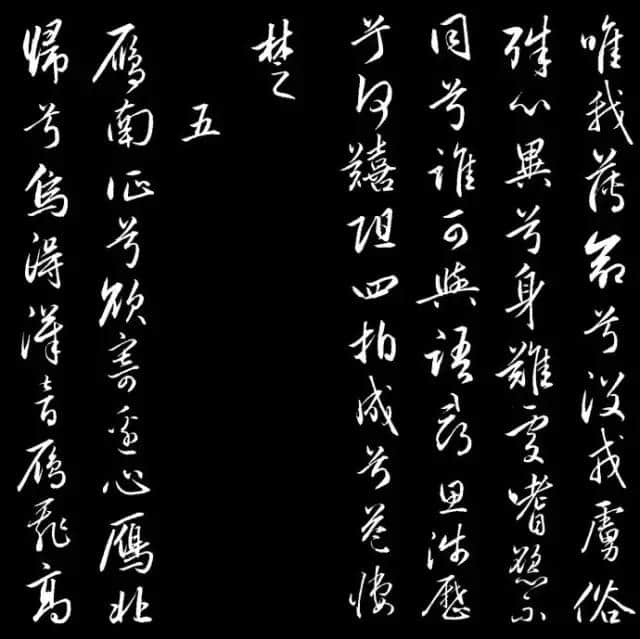 唯我薄命兮没戎虜俗
殊心異兮身難處嗜慾不
同兮誰可與語尋思涉歷
兮何囏阻四拍成兮益悽
楚
五
鴈南征兮欲寄邊心鴈北
歸兮為得漢音鴈飛高